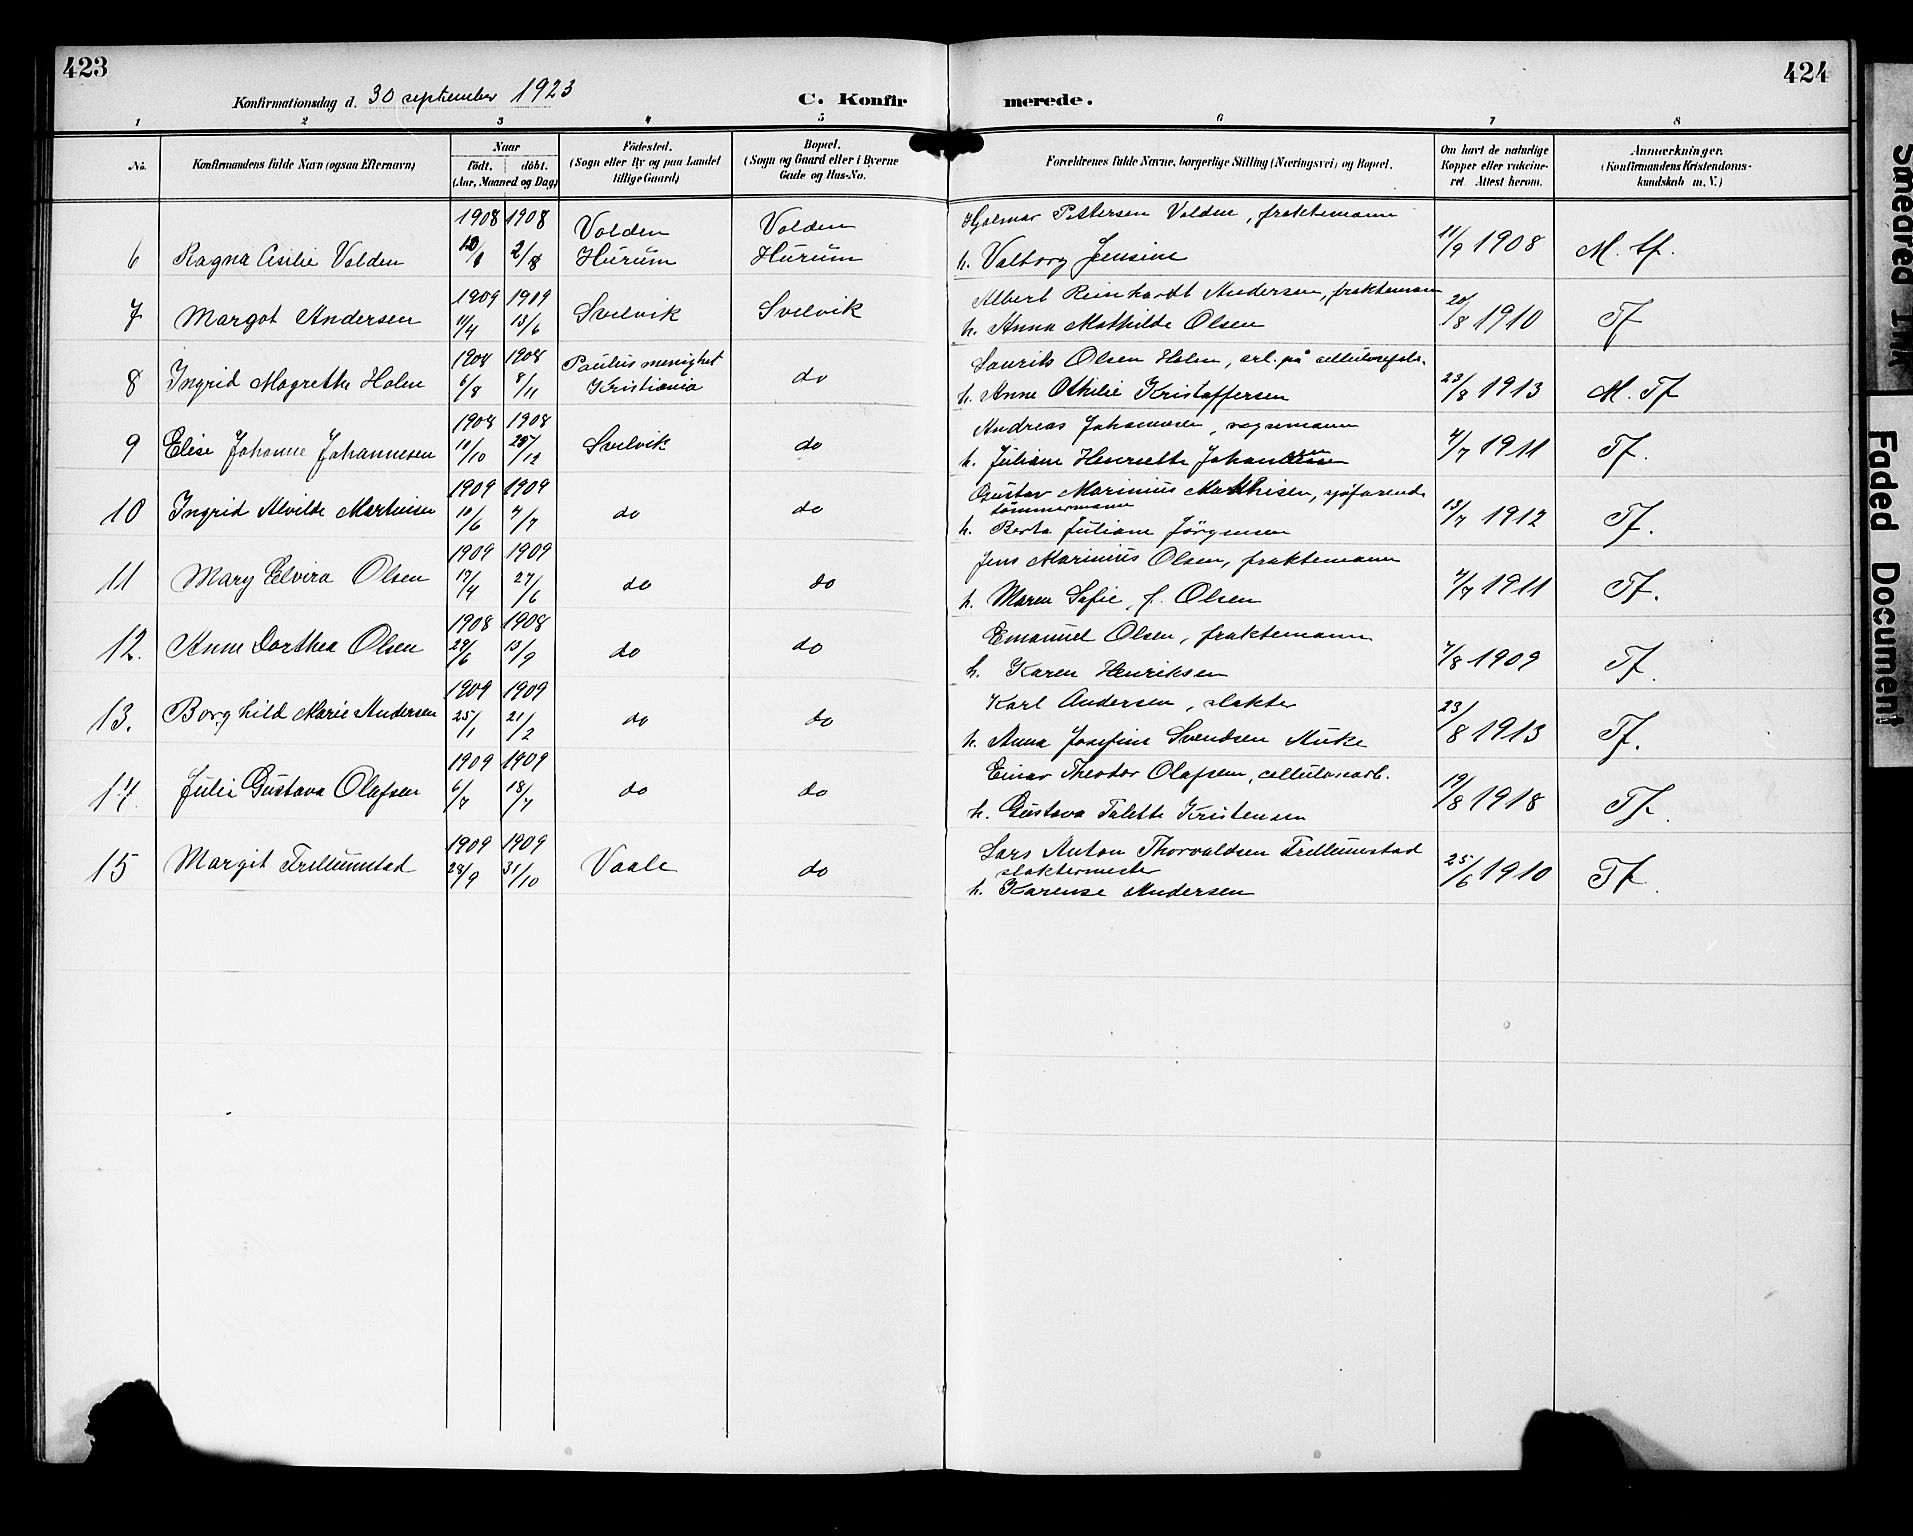 423
424
Konfirmationsdag d. 30 september 1923
C. Konfir
merede.
1 2 3 4 5 6 7 8
No.
Konfirmandens fulde Navn (ogsaa Efternavn)
Naar
födt. döbt.
(Aar, Maaned og Dag)
Födested.
(Sogn eller By og paa Landet
tillige Gaard)
Bopæl.
(Sogn og Gaard eller i Byerne
Gade og Hus-No.
Forældrenes fulde Navne, borgerlige Stilling (Næringsvei) og Bopæl.
Om havt de naturlige
Kopper eller vakcine-
ret. Attest herom.
Anmærkninger.
(Konfirmandens Kristendoms-
kundskab m. V.)
1908 1908 Volden Volden Hjalmar Pettersen Volden, fraktemann
6 Ragna Cisilie Volden 2/8 Hurum Hurum h. Valborg Jensine 11/9 1908
1909 1909 Albert Reinhardt Andersen, fraktemann
7 Margot Andersen 11/4 13/6 Svelvik Svelvik h. Anna Mathilde Olsen 20/8 1910 Tf
1908 1908 Paulus menighet Laurits Olsen Holm, arb. på cellulosefabr.
8 Ingrid Magrethe Holm 6/8 8/11 Kristiania do h. Anne Othilie Kristoffersen 23/8 1913 M. Tf
1908 1908 Andreas Johannesen, vognmann
9 Elise Johanne Johannesen 10/10 /12 Svelvik do h. Juliane Henriette 4/7 1911 Tf.
1909 1909 Gustav Marinius Mathisen, sjöfarende
tömmermann
10 Ingrid Alvilde 10/6 4/7 do do h. Berta Juliane Jörgensen 13/7 1912 Tf.
1909 1909 Jens Marinius Olsen, fraktemann
11 Mary Elvira Olsen 17/4 27/6 do do h. Maren Sofie, f. Olsen 4/7 1911 Tf.
1908 1908 Emanuel Olsen, fraktemann
12. Anne Dorthea Olsen 29/6 13/9 do do h. Karen Henriksen 7/8 1909 Tf.
1909 1909 Karl Andersen, slakter
13. Borghild Marie Andersen 25/1 21/2 do do h. Anna Josefine Svendsen 23/8 1913 Tf.
1909 1909 Einar Theodor Olafsen, cellulosearb.
14. Julie Gustava Olafsen 6/7 18/7 do do h. Gustava Talette Kristensen 19/8 1918 Tf.
1909 1909 Lars Anton Thorvaldsen Trillumstad
slaktermester
15 Margit Trillumstad 28/9 31/10 Vaale do h. Karense Andersen 25/6 1910 Tf.
Smeared Ink
Faded Document